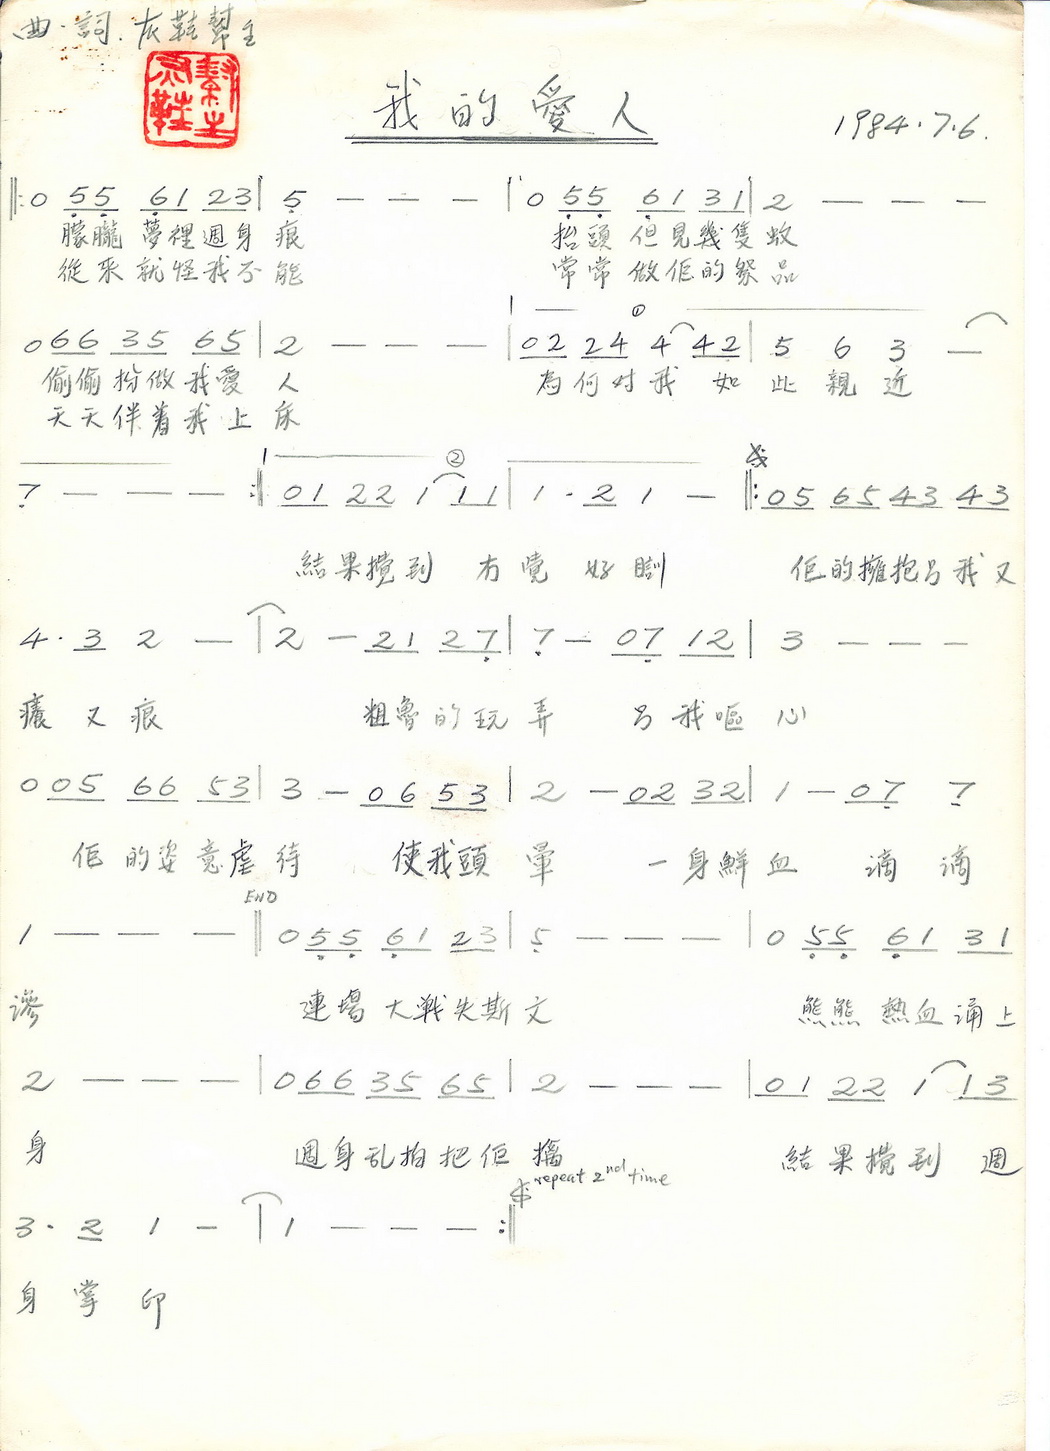 曲·詞. 灰鞋幫主
灰鞋幫主
我的愛人
1984.7.6.
‖: 0 55 61 23 | 5 — — — | 0 55 61 31 | 2 — — —
朦朧 夢裡週身 痕 抬頭 但見幾隻 蚊
從來就怪我不能 常常 做佢的祭品
1 ①
0 66 35 65 | 2 — — — | 02 24 4 42 | 5 6 3 —
偷偷扮做我愛 人 為何对我 如 此 親 近
天天伴着我上 床
1 ②
7 — — — :‖ 01 22 1 11 | 1 · 2 1 — ‖: 05 65 43 43
結果攪到 冇覺 好瞓 佢的擁抱另我又
4 · 3 2 — | 2 — 21 27 | 7 — 07 12 | 3 — — —
癢 又 痕 粗魯的玩 弄 另我嘔 心
0 05 66 53 | 3 — 06 53 | 2 — 02 32 | 1 — 07 7
佢的姿意虐待 使我頭 暈 一身鮮血 滴 滴
END
1 — — — ‖ 0 55 61 23 | 5 — — — | 0 55 61 31
滲 連場大戰失斯文 熊熊 熱血涌上
2 — — — | 0 66 35 65 | 2 — — — | 01 22 1 13
身 週身乱拍把佢 搵 結果攪到 週
repeat 2nd time
3 · 2 1 — | 1 — — — :‖
身 掌 印